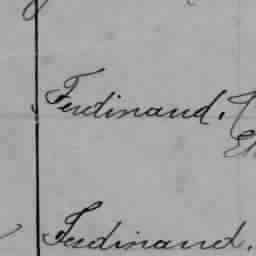 Ferdinand.
Ferdinand.